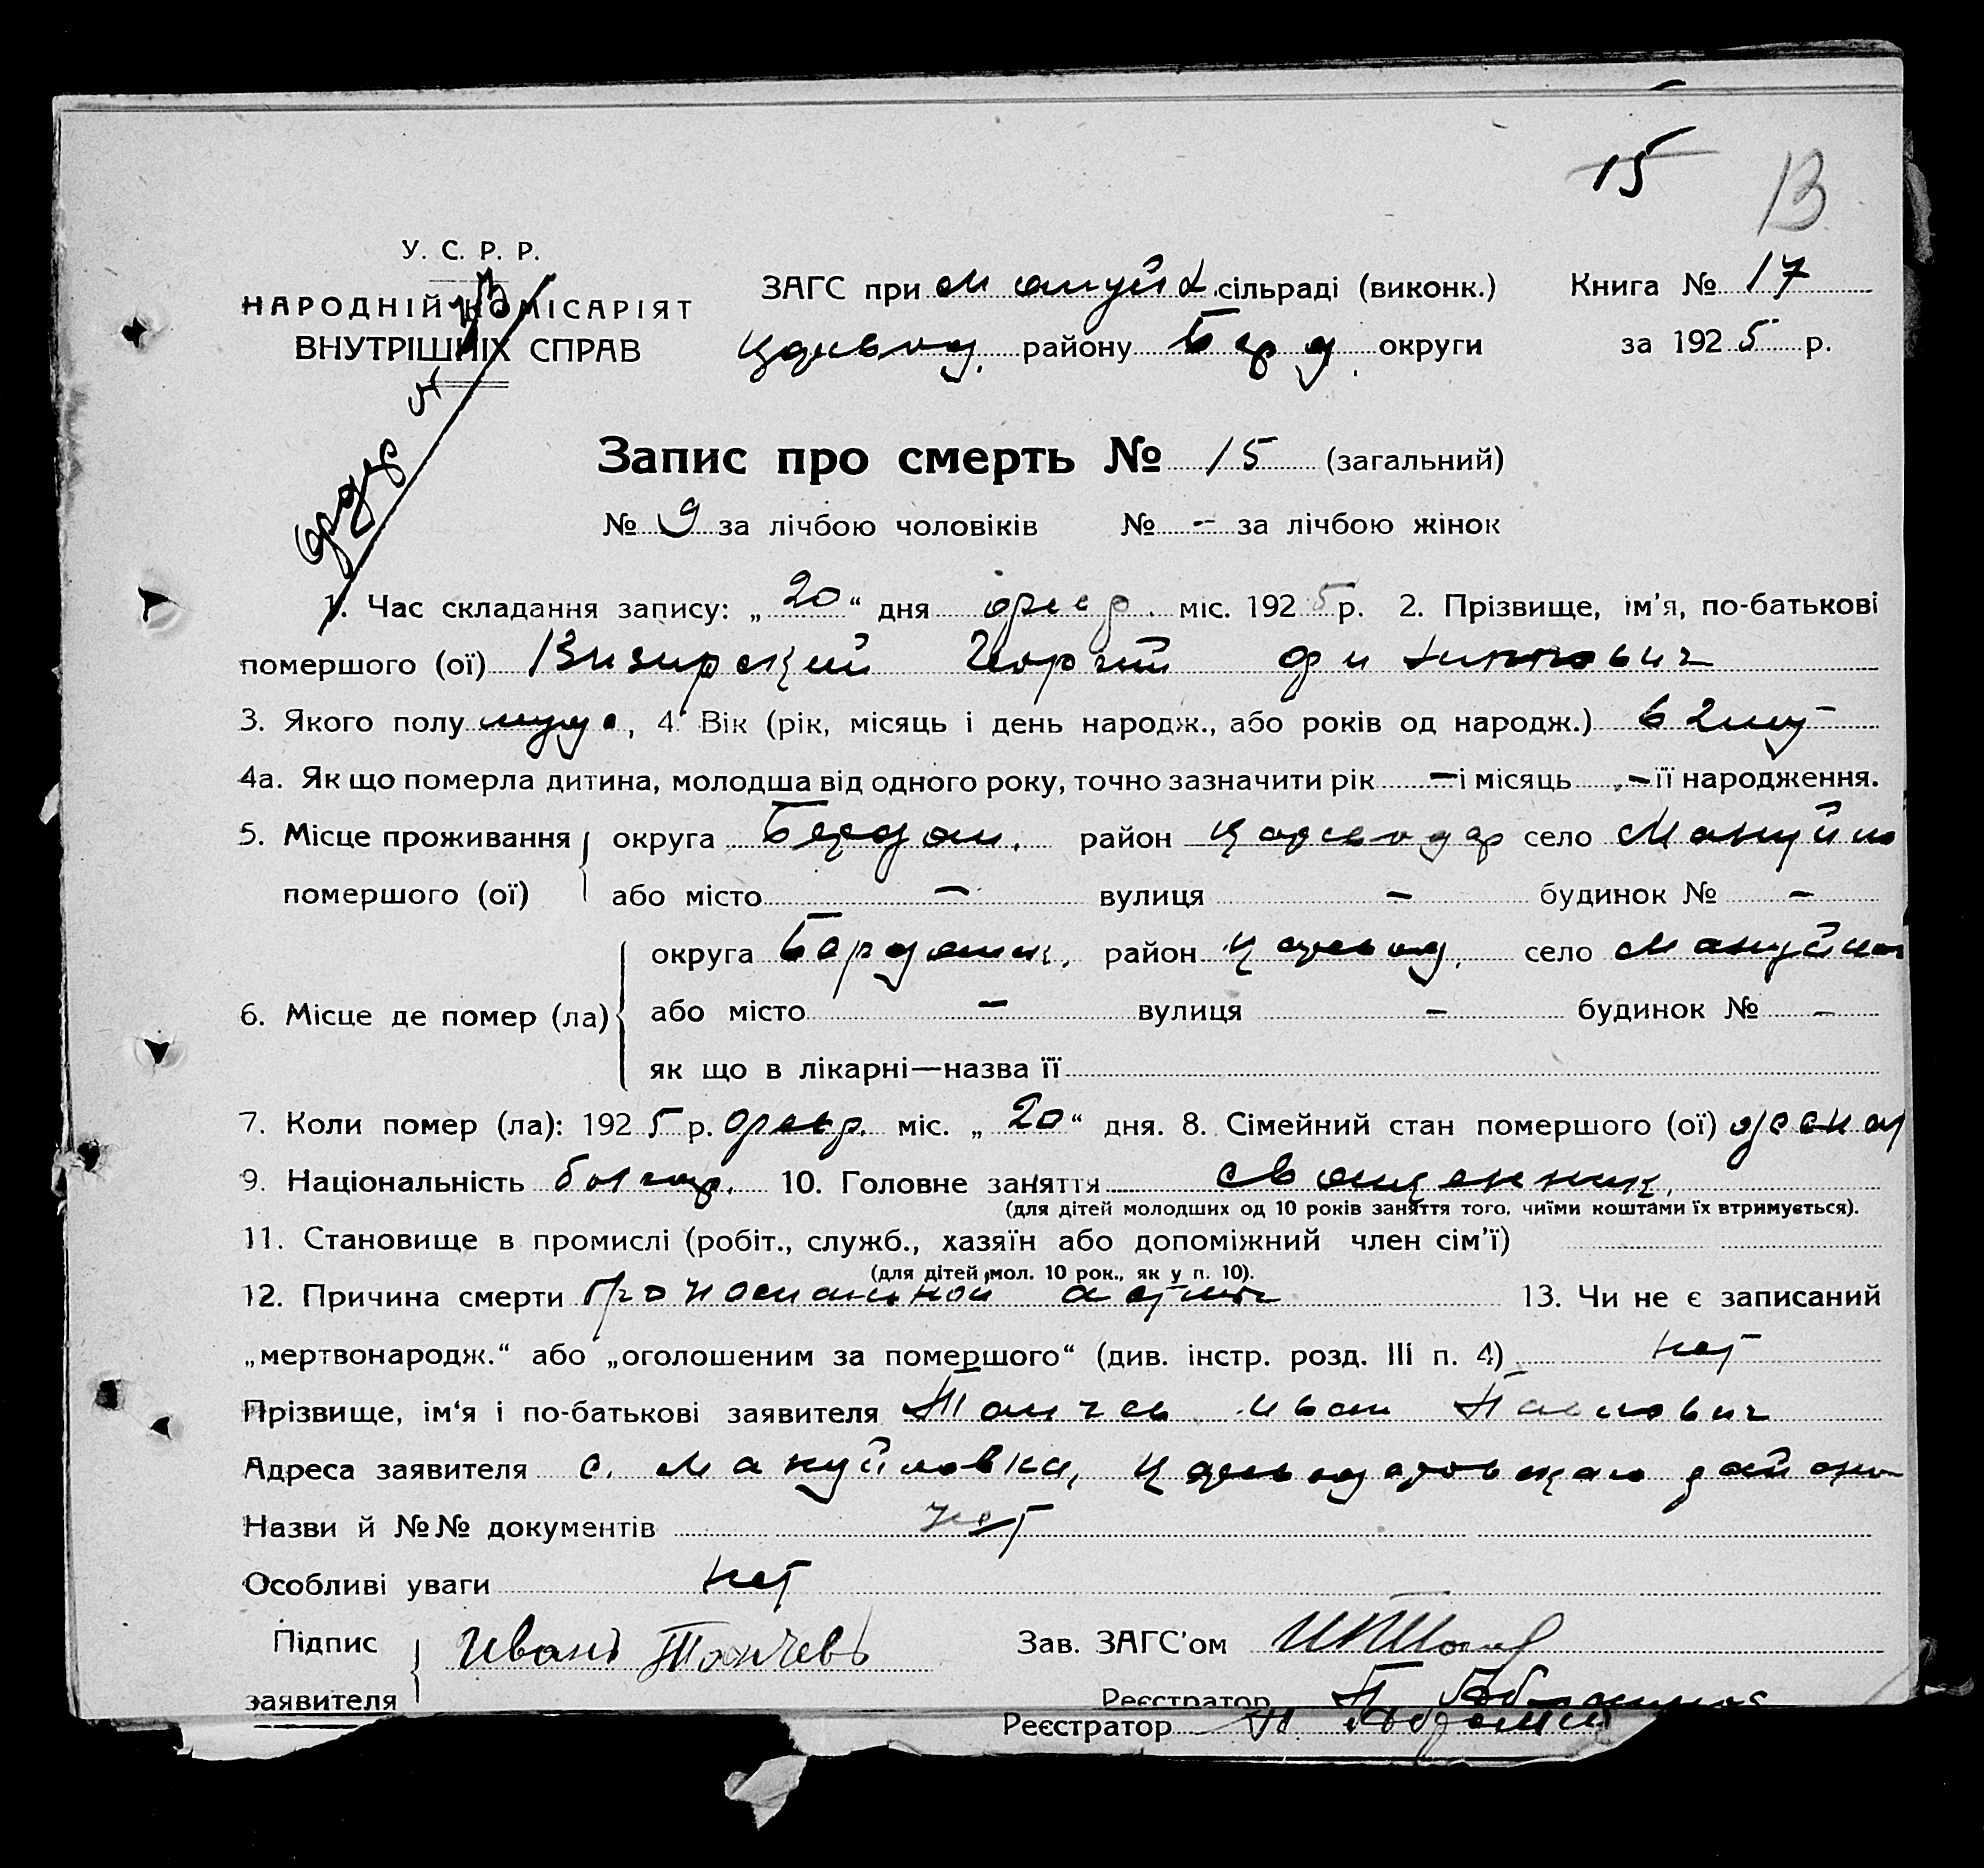 15 13
У. С. Р. Р.
НАРОДНІЙ КОМІСАРІЯТ
ВНУТРІШНІХ СПРАВ
ЗАГС при Мануйл. сільраді (виконк.) Книга № 17
району Берд. округи за 1925 р.
Запис про смерть № 15 (загальний)
№ 9 за лічбою чоловіків № - за лічбою жінок
1. Час складання запису: „20“ дня февр. міс. 1925 р. 2. Прізвище, ім'я, по-батькові
помершого (ої) Визирский Георгий Филиппович
3. Якого полу муж., 4. Вік (рік, місяць і день народж., або років од народж.) 62
4а. Як що померла дитина, молодша від одного року, точно зазначити рік — і місяць — її народження.
5. Місце проживання округа Бердян. район Цареводар село Мануйло
помершого (ої) або місто — вулиця — будинок № —
округа Бердянск. район Царевод. село Мануйлов
6. Місце де помер (ла) або місто — вулиця — будинок № —
як що в лікарні—назва її
7. Коли помер (ла): 1925 р. февр. міс. „20“ дня. 8. Сімейний стан помершого (ої) женат
9. Національність болгар. 10. Головне заняття священник.
(для дітей молодших од 10 років заняття того, чиїми коштами їх втримується).
11. Становище в промислі (робіт., служб., хазяїн або допоміжний член сім'ї)
(для дітей мол. 10 рок., як у п. 10).
12. Причина смерти астмы 13. Чи не є записаний
„мертвонародж.“ або „оголошеним за помершого“ (див. інстр. розд. III п. 4) нет
Прізвище, ім'я і по-батькові заявителя Танчев Иван Павлович
Адреса заявителя с. Мануйловка, Цареводаровского района
Назви й №№ документів нет
Особливі уваги нет
Підпис Иванъ Танчевъ Зав. ЗАГС'ом
заявителя Реєстратор П.
Реєстратор